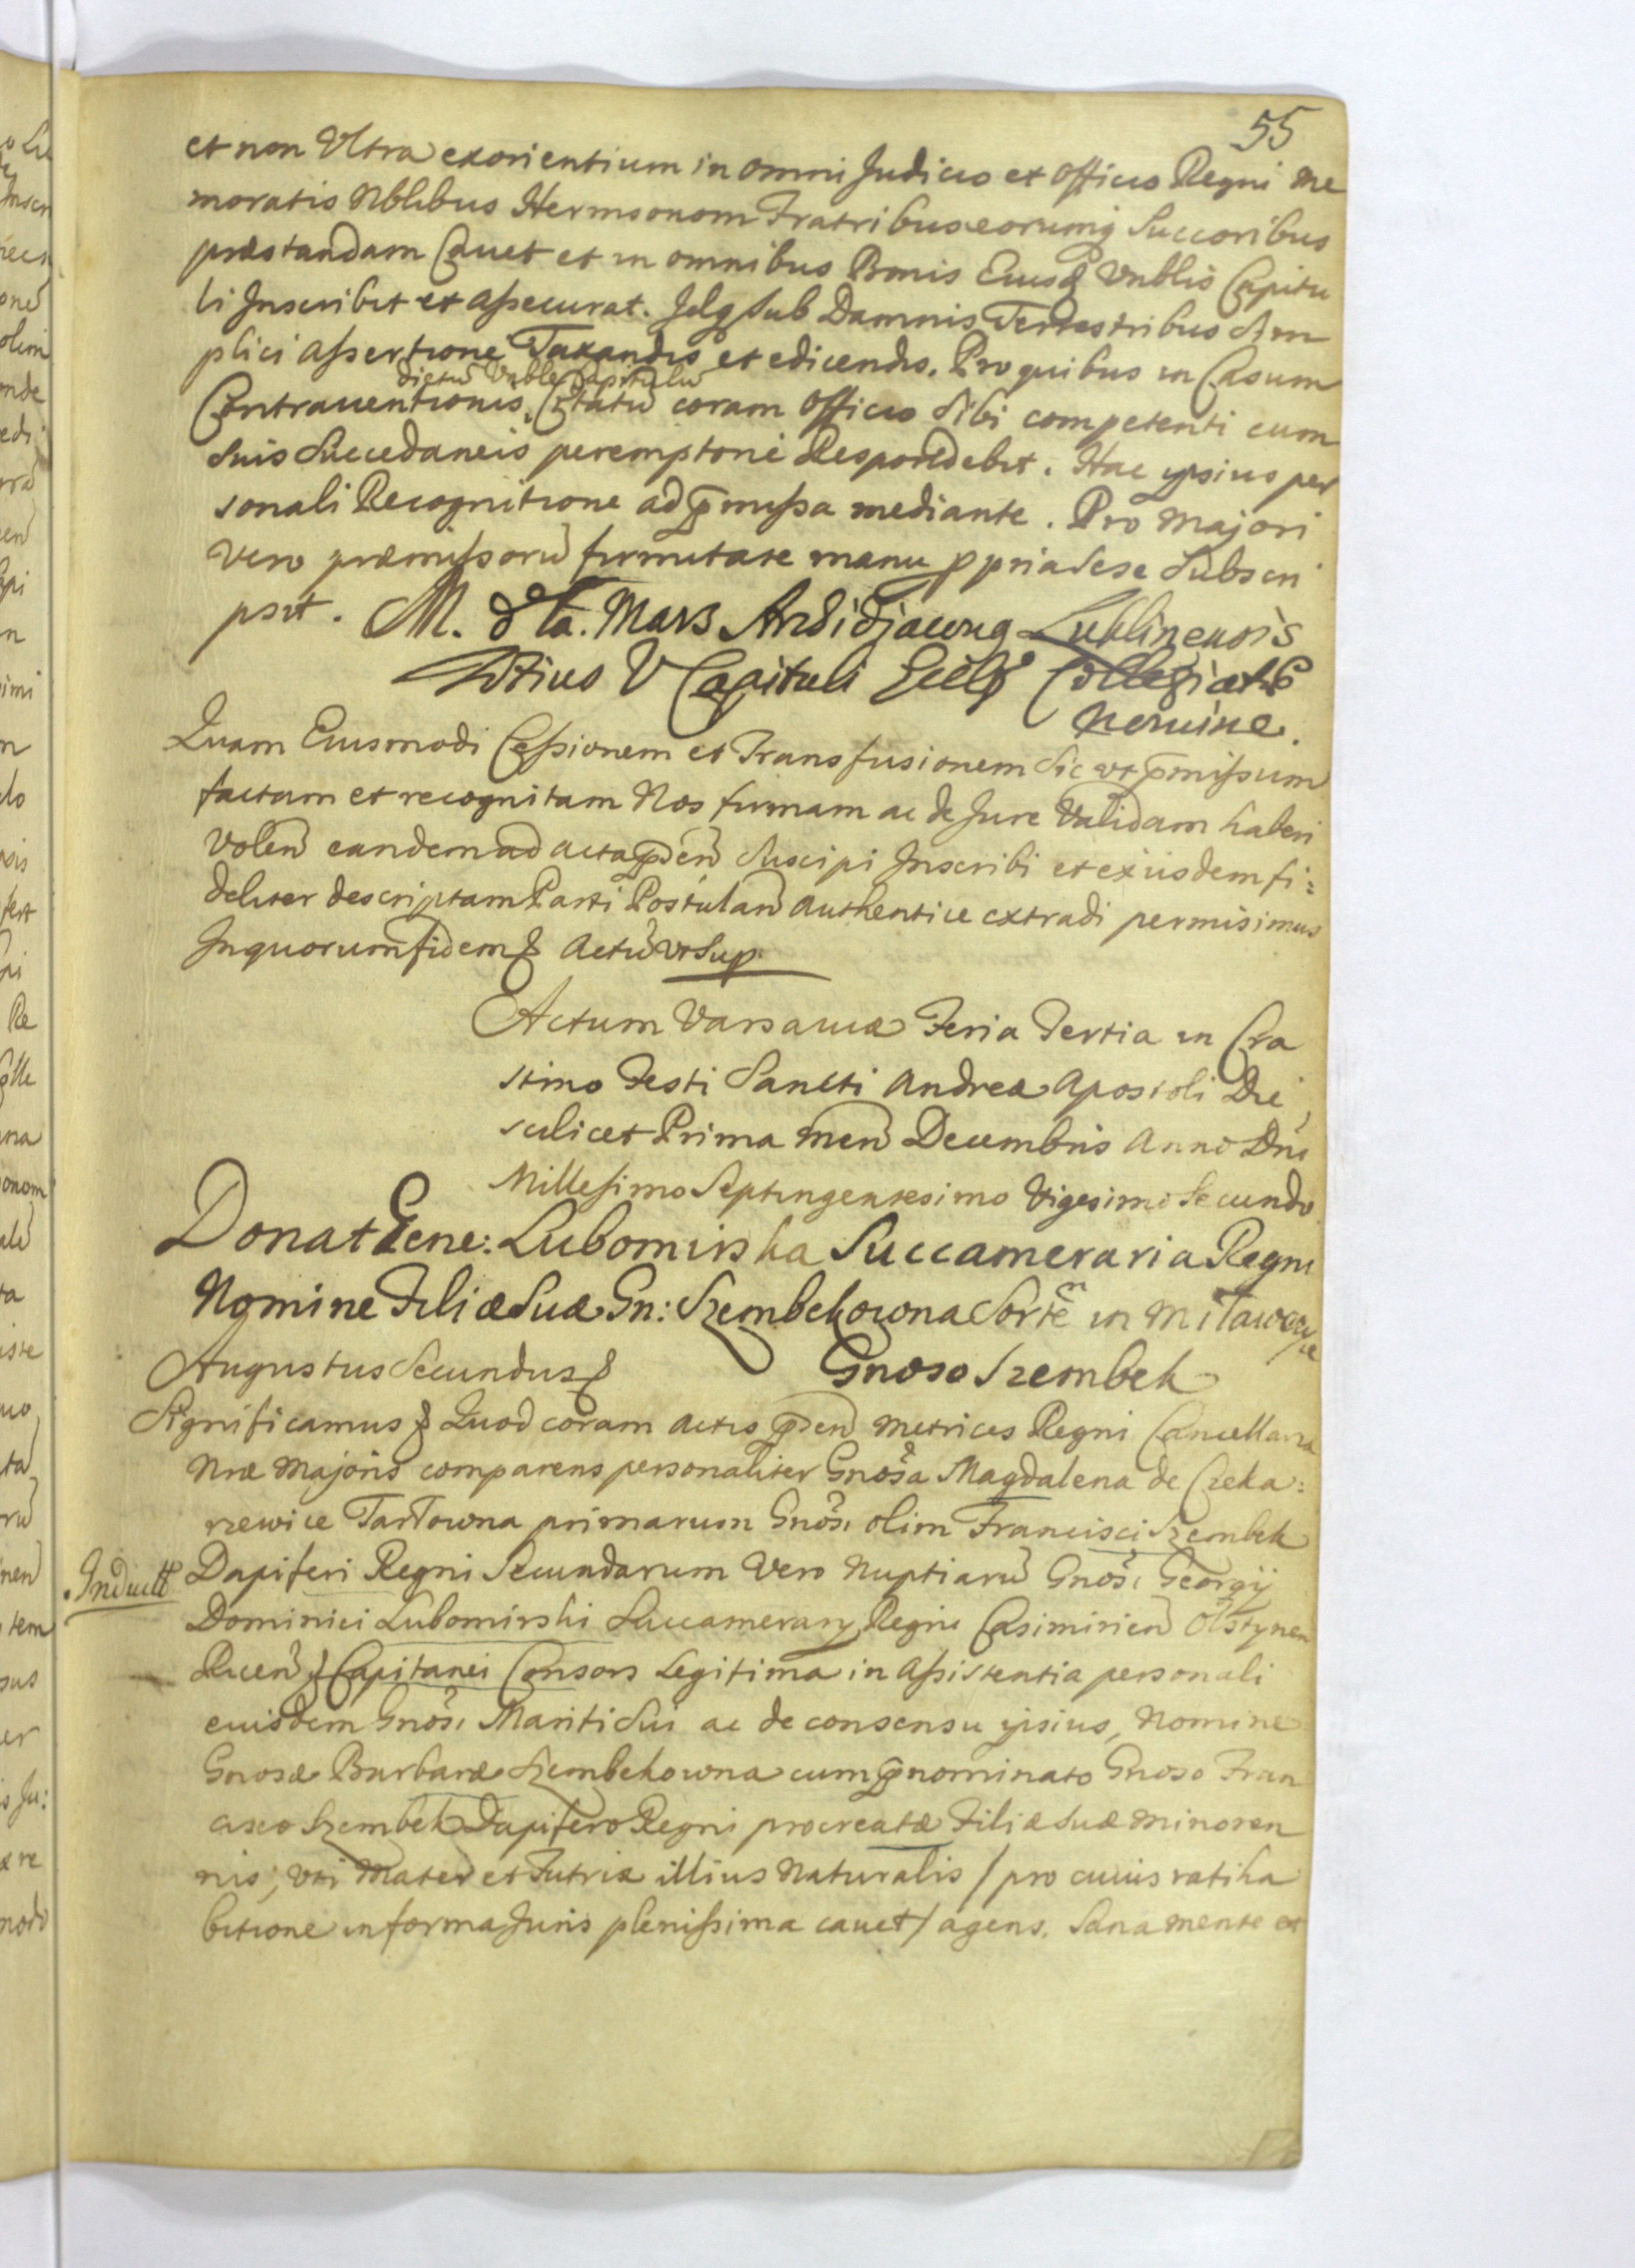 55
et non Ultra exorientium in omni Judicio et Officio Regni me
moratis Nblibus Hermsonom Fratribus eorumq Succoribus
præstandam Cauet et in omnibus Bonis Eiusd Vnblis Capitu
li Inscribit et assecurat. Idq sub Damnis Terrestribus Sim
plici assertione Taxandis et edicendis. Pro quibus in Casum
dictũ Vnble Capitulũ
Contrauentionis, Cttatũ coram Officio Sibi competenti cum
suis Succedaneis peremptorie Respondebit. Hac ipsius per
sonali Recognitione ad p̄missa mediante. Pro Majori
vero præmissorũ firmitate manu ppria sese Subscri
psit. M. Mars Lublinensis
V Capituli Eccl Collegiatæ
Nomine.
Quam Eiusmodi Cessionem et Transfusionem Sic ut p̄missum
factam et recognitam Nos firmam ac de Jure Validam haberi
Volen̄ eandem ad acta p̄sen̄ Suscipi Inscribi et ex iisdem fi:
deliter descriptam Parti Postulan̄ authentice extradi permisimus
In quorum fidem & Actũ ut Sup.
Actum Varsaviæ Feria Tertia in Cra
stino Festi Sancti Andreæ Apostoli Die
scilicet Prima men̄ Decembris Anno Dni
Millesimo Septingentesimo Vigesimo Secundo
Donat Gene: Lubomirska Succameraria Regni
Nomine Filiæ Suæ Gn: Szembekowna Sortē in Miławczyce
Augustus Secundus & Gnoso Szembek
Significamus & Quod coram Actis p̄sen̄ Metrices Regni Cancellariæ
Nræ Majoris comparens personaliter Gnosa Magdalena de Czeka:
rzewice Tarłowna primarum Gnosi olim Francisci Szembek
Indult Dapiferi Regni Secundarum Vero Nuptiarũ Gnosi Georgij
Dominici Lubomirski Succamerarij Regni Casimirien̄ Olstynen
Ricen̄ & Capitanei Consors Legitima in Assistentia personali
eiusdem Gnosi Mariti Sui ac de consensu ipsius, Nomine
Gnosæ Barbaræ Szembekowna cum p̄nominato Gnoso Fran
cisco Szembek Dapifero Regni procreatæ Filiæ Suæ Minoren
nis, Uti Mater et Tutrix illius Naturalis / pro cuius ratiha
bitione in forma Juris plenissima cauet / agens. Sana mente et